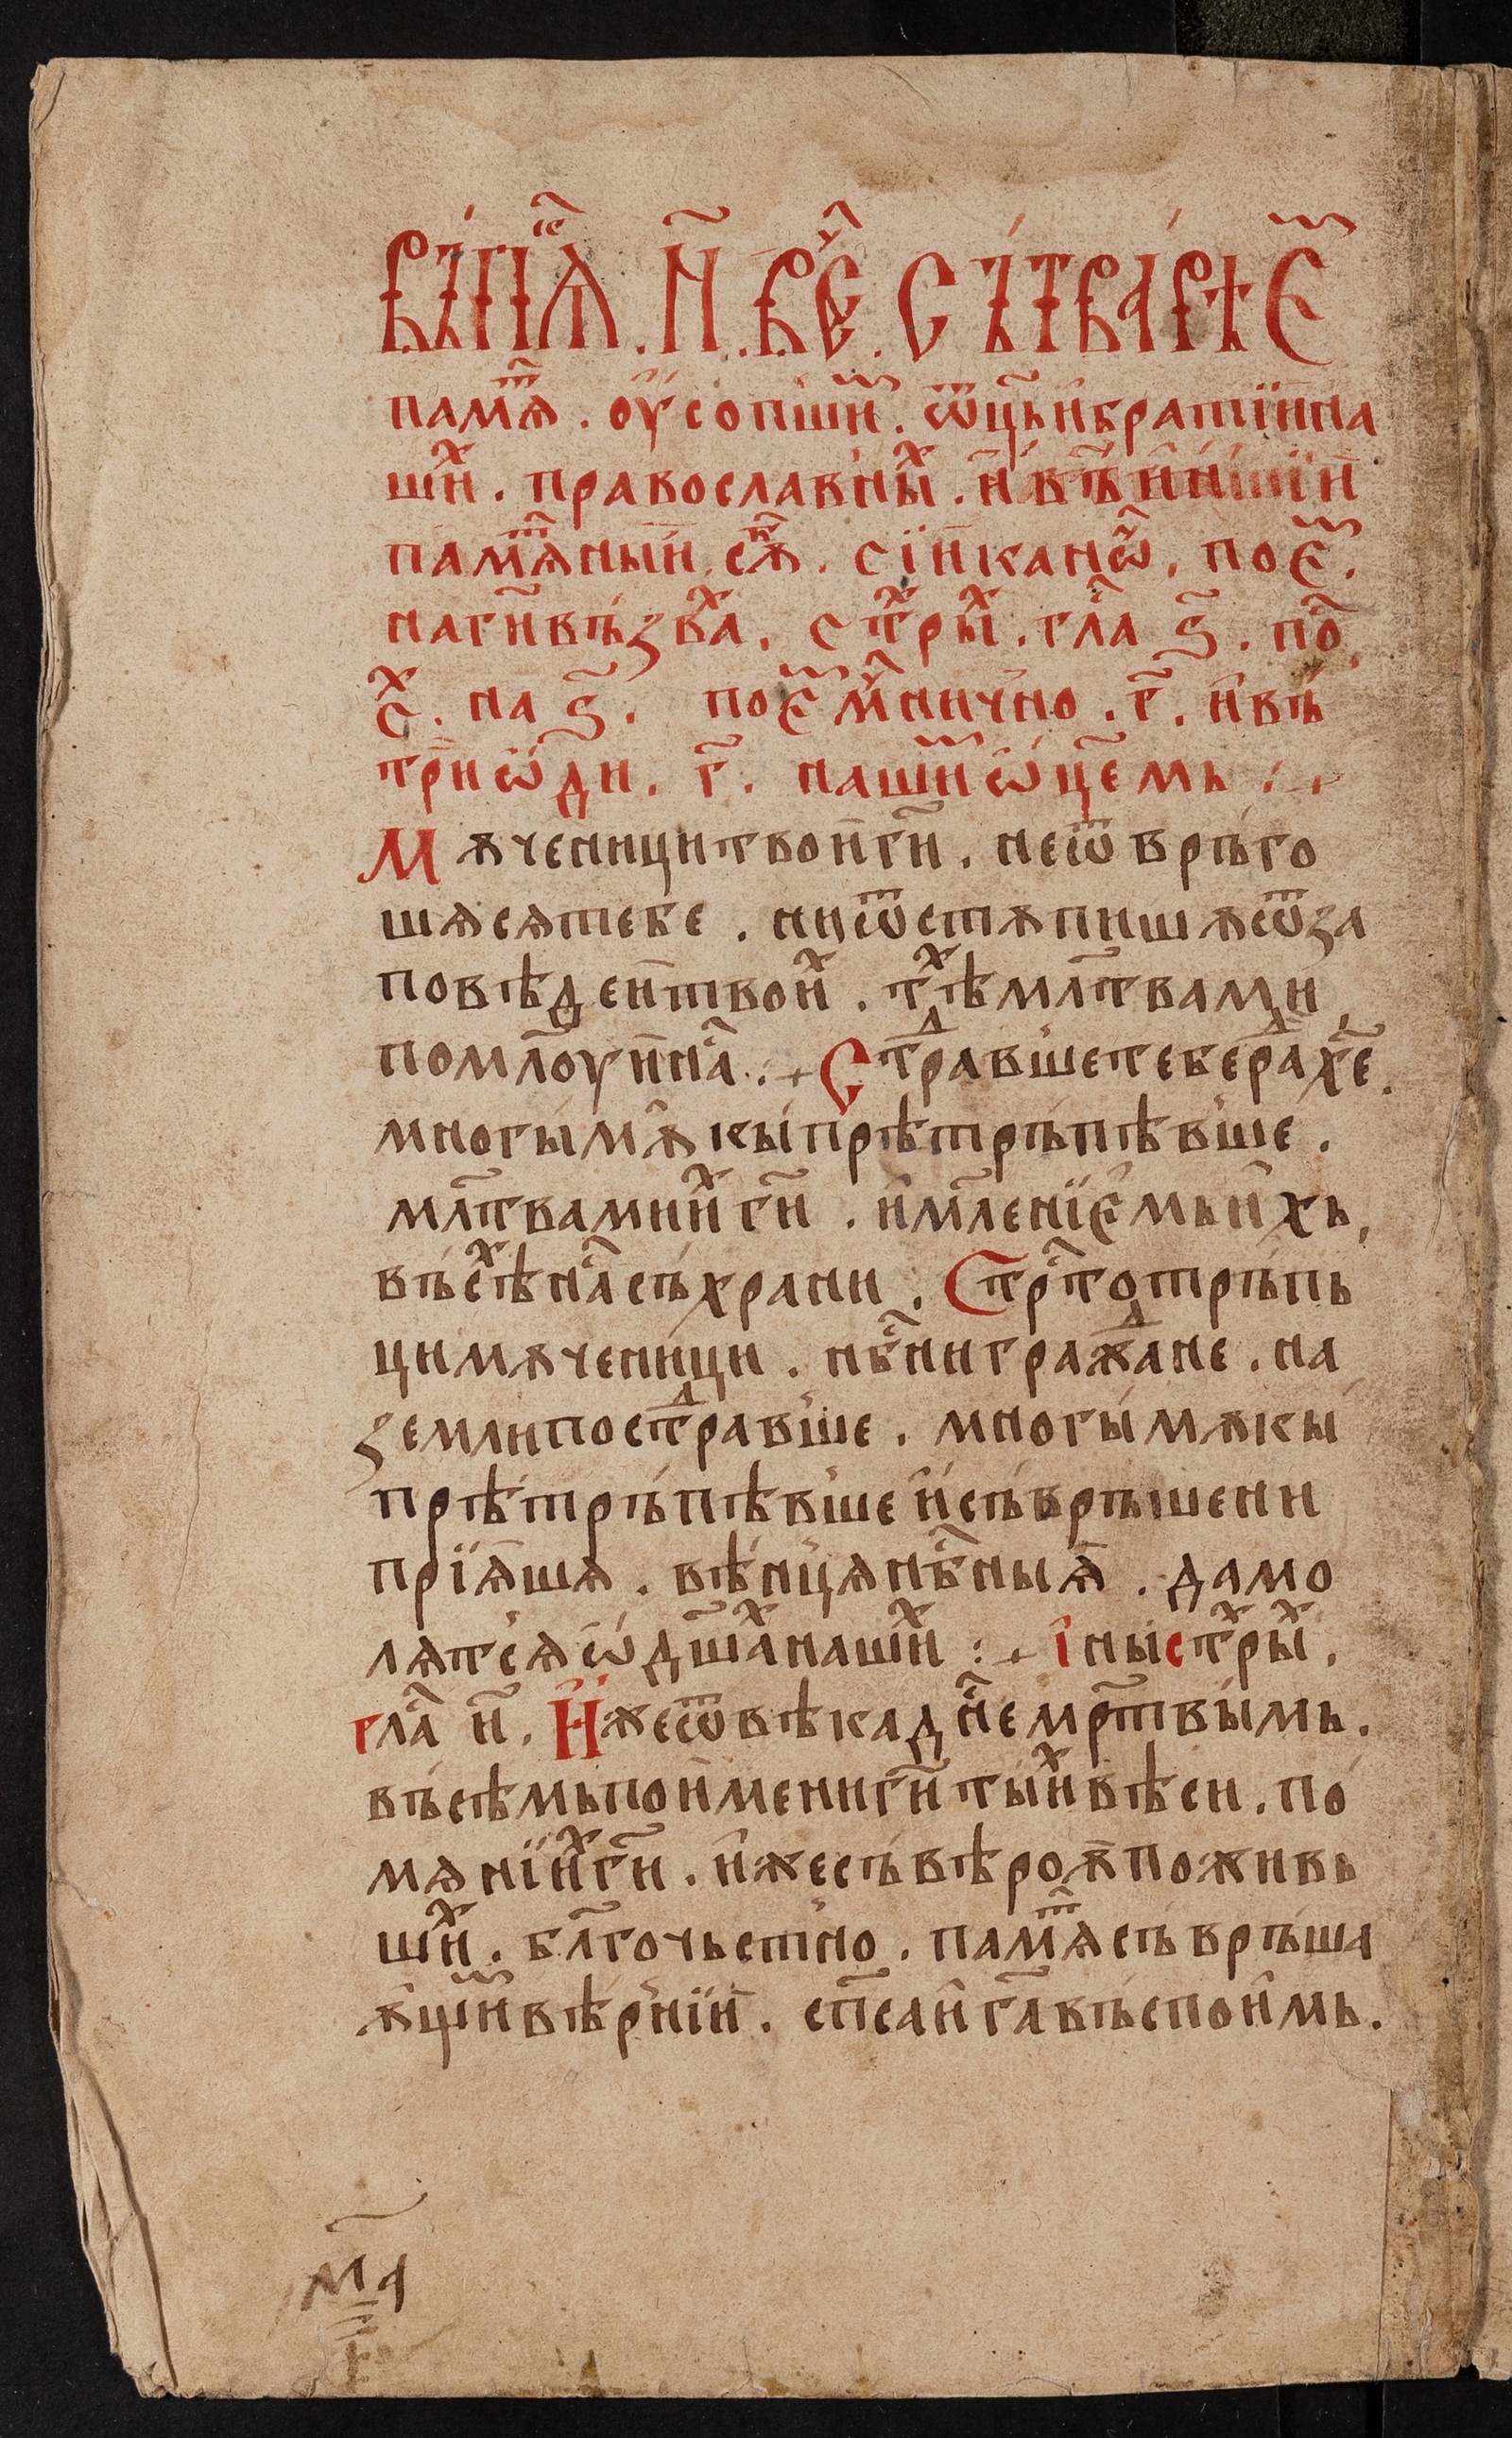 въ пⷮѧ . н҃ . вⷱ҇е . сътварѣѐⷨ
памⷮѧ . оу҆сопшиⷨ . ѿц҃ьи҆братїи҆на
шиⷯ . православныⷯ . и҆
памⷮѧный свⷮѧ . сїи҆канѡⷩ҇ . поеⷨ .
наги҃възвⷯа . стⷯрыⷯ . глⷭ҇а ѕ҃ . поⷣ
сⷯ . на ѕ҃ . поеⷨ мⷱ҇нично . г҃ . и҆въ
трїи ѡ҆ди . г҃ . нашиⷨ ѡ҆ц҃емь :~
Мѫченицитвои҆ги҃ . неѿврьго
шѫсѧтебе . ниѿстѫпишѫѿза
повѣдеи҆твоиⷯ . тⷯѣмл҃твами
помл҃оуи҆наⷭ҇ .:+ Стⷣравшетебераⷣх҃е .
многы́мѫкы́прѣтръпѣвше .
мл҃твамииⷯ ги҃ . и҆мл҃енїе҆мьи҆хь ,
въсⷯѣнаⷭ҇съхрани . Стрⷭ҇тотръпь
цимѫченици . нб҃нигражⷣане . на
землипостⷣравше . многы́мѫкы
прѣтръпѣвше и҆съвръшени
прїѧ҆шѫ . вѣнцѧнбⷭ҇ныѧ҆ . дамо
лѧтсѧ ѡ҆ дш҃аⷯнашиⷯ :+ і҆ныстⷯрыⷯ .
глⷭ҇а и҃ . И҆жеѿвѣкадн҃емрт҃вымь .
въсѣмьпои҆мениги҃ тыиⷯвѣси . по
мѧнїиⷯги҃ . и҆жесъвѣроѫ҆поживь
шиⷯ . бл҃гочьстно . памⷮѧсъвръша
ѫ҆щиⷨвѣрнїи҆ . сп҃саи҆га҃въспои҆мь .
м҃а